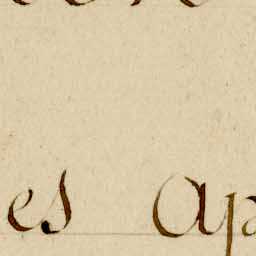 es Ap